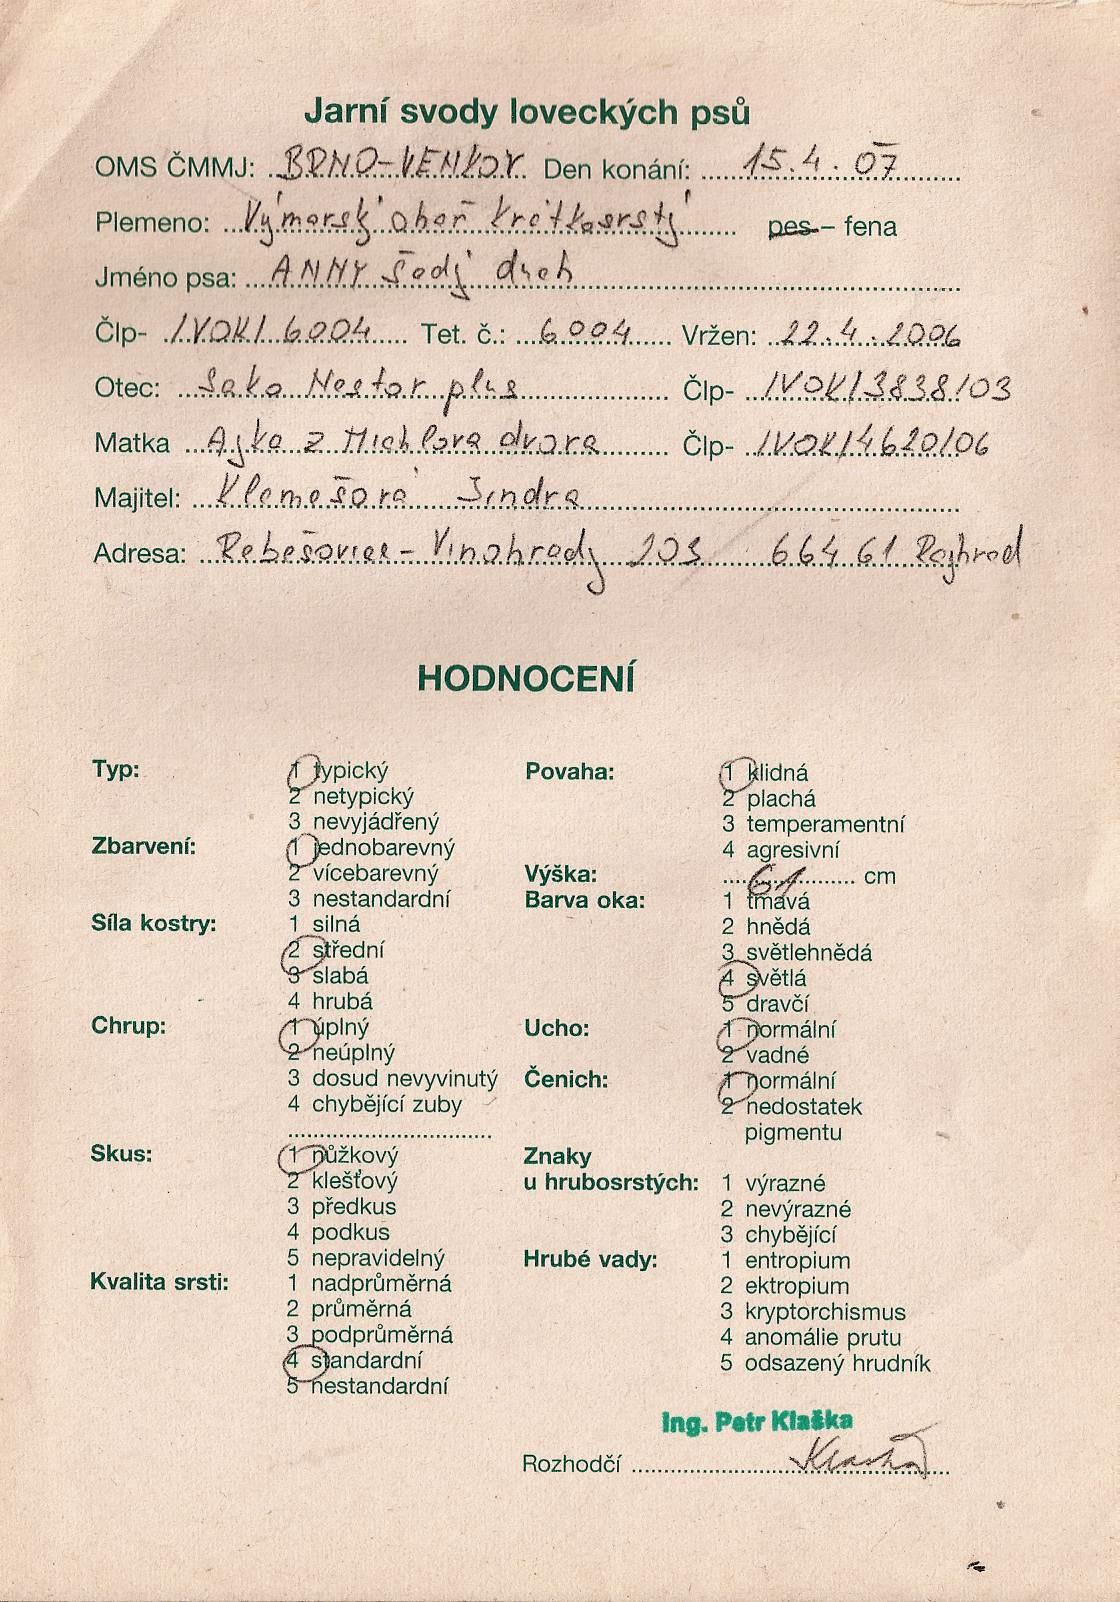 Jarní svody loveckých psů
OMS ČMMJ: BRNO-VENKOV Den konání: 15.4.07
Plemeno: Výmarský ohař krátkosrstý pes – fena
Jméno psa: ANNY šedý druh
Člp- /VOK/ 6004 Tet. č.: 6004 Vržen: 22.4.2006
Otec: Sako Nestor plus Člp- /VOK/3838/03
Matka Ajka z Michlova dvora Člp- /VOK/4620/06
Majitel: Klemešová Jindra
Adresa: Rebešovice - Vinohrady 203 664 61 Rajhrad
HODNOCENÍ
Typ: 1 typický
2 netypický
3 nevyjádřený
Zbarvení: 1 jednobarevný
2 vícebarevný
3 nestandardní
Síla kostry: 1 silná
2 střední
3 slabá
4 hrubá
Chrup: 1 úplný
2 neúplný
3 dosud nevyvinutý
4 chybějící zuby
Skus: 1 nůžkový
2 klešťový
3 předkus
4 podkus
5 nepravidelný
Kvalita srsti: 1 nadprůměrná
2 průměrná
3 podprůměrná
4 standardní
5 nestandardní
Povaha: 1 klidná
2 plachá
3 temperamentní
4 agresivní
Výška: 61 cm
Barva oka: 1 tmavá
2 hnědá
3 světlehnědá
4 světlá
5 dravčí
Ucho: 1 normální
2 vadné
Čenich: 1 normální
2 nedostatek
pigmentu
Znaky
u hrubosrstých: 1 výrazné
2 nevýrazné
3 chybějící
Hrubé vady: 1 entropium
2 ektropium
3 kryptorchismus
4 anomálie prutu
5 odsazený hrudník
Ing. Petr Klaška
Rozhodčí Klaška